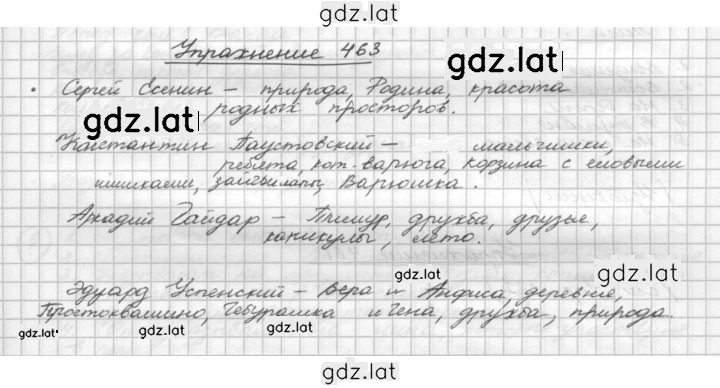 gdz.lat
Упражнение 463
gdz.lat
Сергей Есенин – природа, Родина, красота
родных просторов.
gdz.lat
Константин Паустовский – мальчишки,
ребята, кот-варюга, корзина с еловыми
шишками, зайчьи лапы, Варюшка.
Аркадий Гайдар – Тимур, дружба, друзья,
каникулы, лето.
gdz.lat
gdz.lat
Эдуард Успенский – Вера и Анфиса, деревне,
Простоквашино, Чебурашка и Гена, дружба, природа.
gdz.lat
gdz.lat
gdz.lat
gdz.lat
gdz.lat